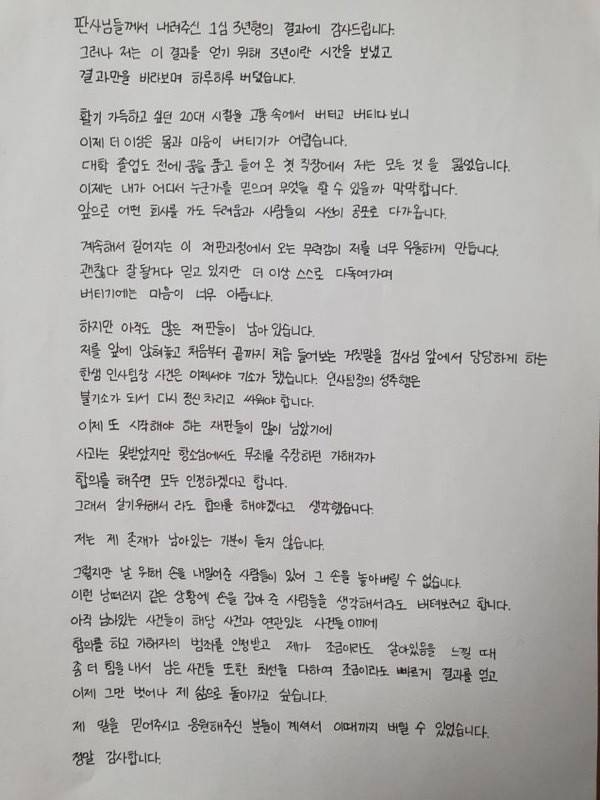 판사님들께서 내려주신 1심 3년형의 결과에 감사드립니다.
그러나 저는 이 결과를 얻기 위해 3년이란 시간을 보냈고
결과만을 바라보며 하루하루 버텼습니다.
활기 가득하고 싶던 20대 시절을 고통 속에서 버티고 버티다 보니
이제 더 이상은 몸과 마음이 버티기가 어렵습니다.
대학 졸업도 전에 꿈을 품고 들어 온 첫 직장에서 저는 모든 것 을 잃었습니다.
이제는 내가 어디서 누군가를 믿으며 무엇을 할 수 있을까 막막합니다.
앞으로 어떤 회사를 가도 두려움과 사람들의 시선이 공포로 다가옵니다.
계속해서 길어지는 이 재판과정에서 오는 무력감이 저를 너무 우울하게 만듭니다.
괜찮다 잘 될거다 믿고 있지만 더 이상 스스로 다독여가며
버티기에는 마음이 너무 아픕니다.
하지만 아직도 많은 재판들이 남아 있습니다.
저를 앞에 앉혀놓고 처음부터 끝까지 처음 들어보는 거짓말을 검사님 앞에서 당당하게 하는
한샘 인사팀장 사건은 이제서야 기소가 됐습니다. 인사팀장의 성추행은
불기소가 되서 다시 정신 차리고 싸워야 합니다.
이제 또 시작해야 하는 재판들이 많이 남았기에
사과는 못받았지만 항소심에서도 무죄를 주장하던 가해자가
합의를 해주면 모두 인정하겠다고 합니다.
그래서 살기위해서 라도 합의를 해야겠다고 생각했습니다.
저는 제 존재가 남아있는 기분이 들지 않습니다.
그렇지만 날 위해 손을 내밀어준 사람들이 있어 그 손을 놓아버릴 수 없습니다.
이런 낭떠러지 같은 상황에 손을 잡아 준 사람들을 생각해서라도 버텨보려고 합니다.
아직 남아있는 사건들이 해당 사건과 연관있는 사건들 이기에
합의를 하고 가해자의 범죄를 인정받고 제가 조금이라도 살아있음을 느낄 때
좀 더 힘을 내서 남은 사건들 또한 최선을 다하여 조금이라도 빠르게 결과를 얻고
이제 그만 벗어나 제 삶으로 돌아가고 싶습니다.
제 말을 믿어주시고 응원해주신 분들이 계셔서 이때까지 버틸 수 있었습니다.
정말 감사합니다.